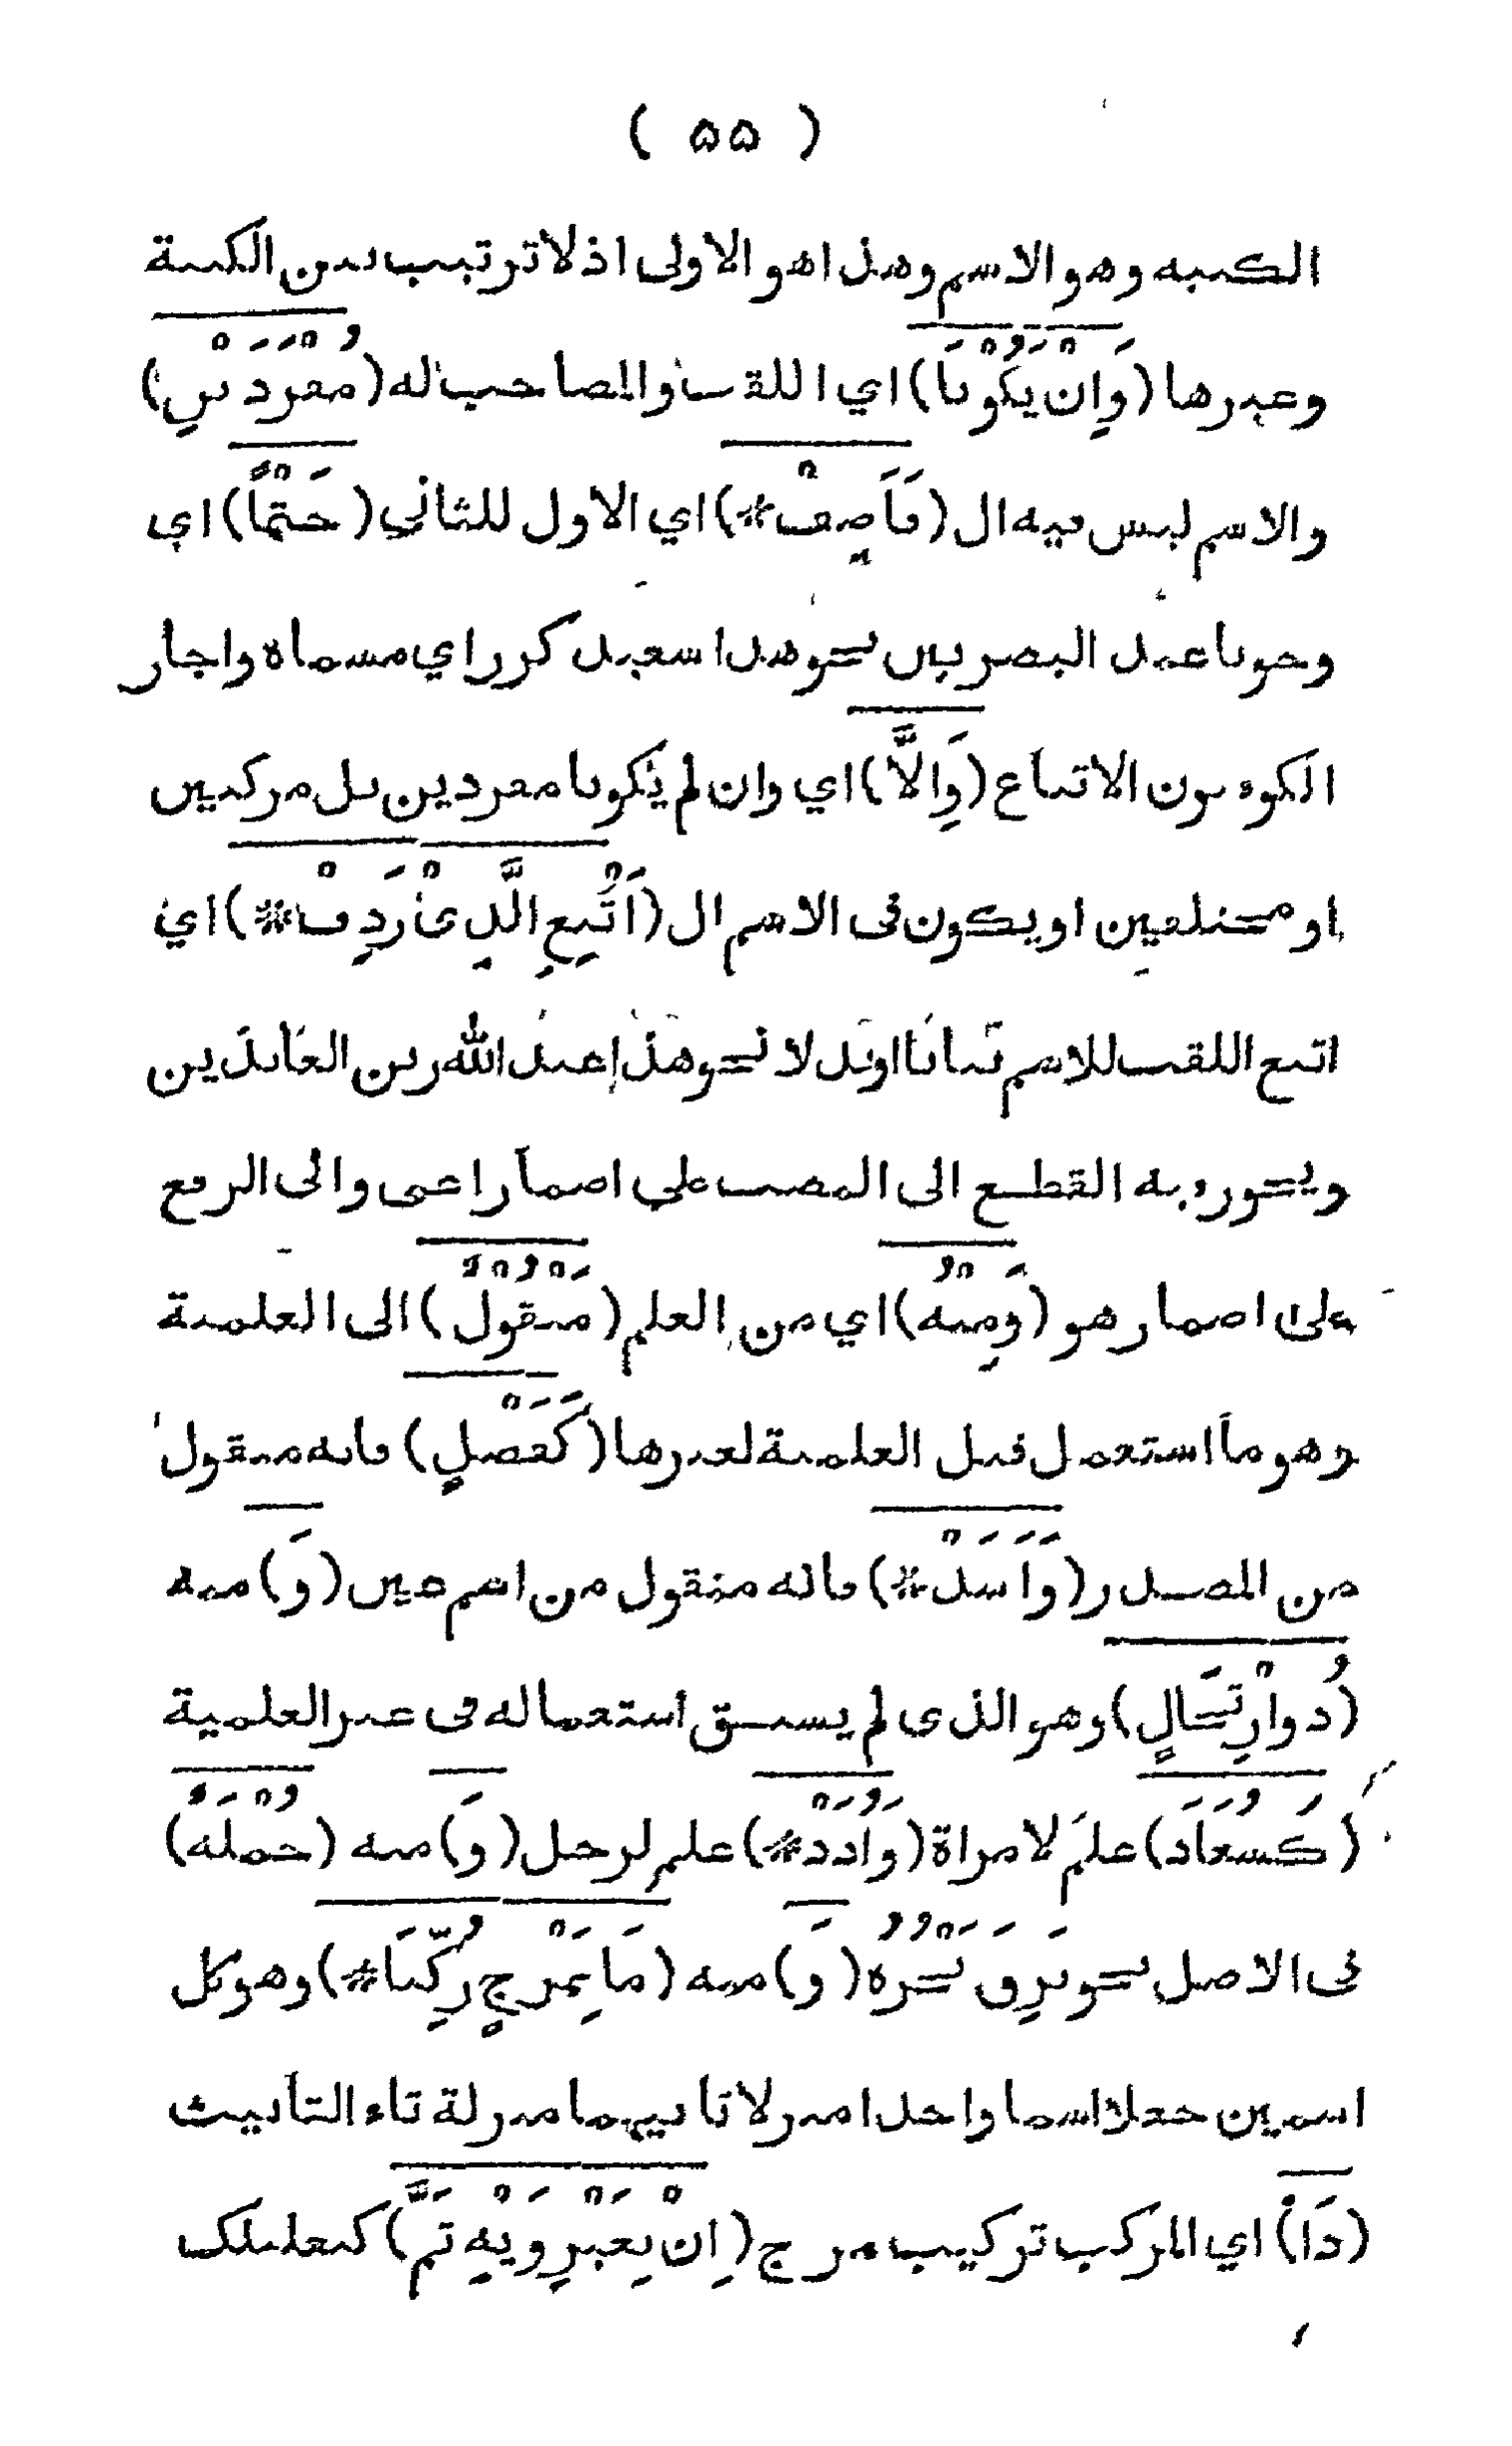 ( ٥٥ )
الكنيه وهو الاسم وهذا هو الاولى اذ لا ترتيب بين الكنية
وغيرها (وَاِنْ يَكُوْنَا) اي اللقب والمصاحب له (مُفْرَدَيْنِ)
والاسم ليس فيه ال (فَاَضِفْ*) اي الاول للثاني (حَتْمًا) اي
وجوبا عند البصريين نحو هذا سعيد كرز اي مسماه واجاز
الكوفيون الاتباع (وَاِلَّا) اي وان لم يكونا مفردين بل مركبين
او مختلفين او يكون في الاسم ال (اَتْبِعِ الَّذِىْ رَدِفْ*) اي
اتبع اللقب للاسم بيانا او بدلا نحو هذا عبد الله زين العابدين
ويجوز فيه القطع الى النصب على اضمار اعنى والى الرفع
على اضمار هو (وَمِنْهُ) اي من العلم (مَنْقُوْلٌ) الى العلمية
وهو ما استعمل قبل العلمية لغيرها (كَفَضْلٍ) فانه منقول
من المصدر (وَاَسَدْ*) فانه منقول من اسم عين (وَ) منه
(ذُو ارْتِجَالٍ) وهو الذى لم يسبق استعماله فى غير العلمية
(كَسُعَادَ) علم لامراة (وَاُدَدْ*) علم لرجل (وَ) منه (جُمْلَةٌ)
فى الاصل نحو بَرِقَ نَحْرُهُ (وَ) منه (مَا بِمَزْجٍ رُكِّبَا*) وهو كل
اسمين جعلا اسما واحدا منزلا ثانيهما منزلة تاء التأنيث
(ذَا) اي المركب تركيب مزج (اِنْ بِغَيْرِ وَيْهِ تَمَّ) كبعلبك